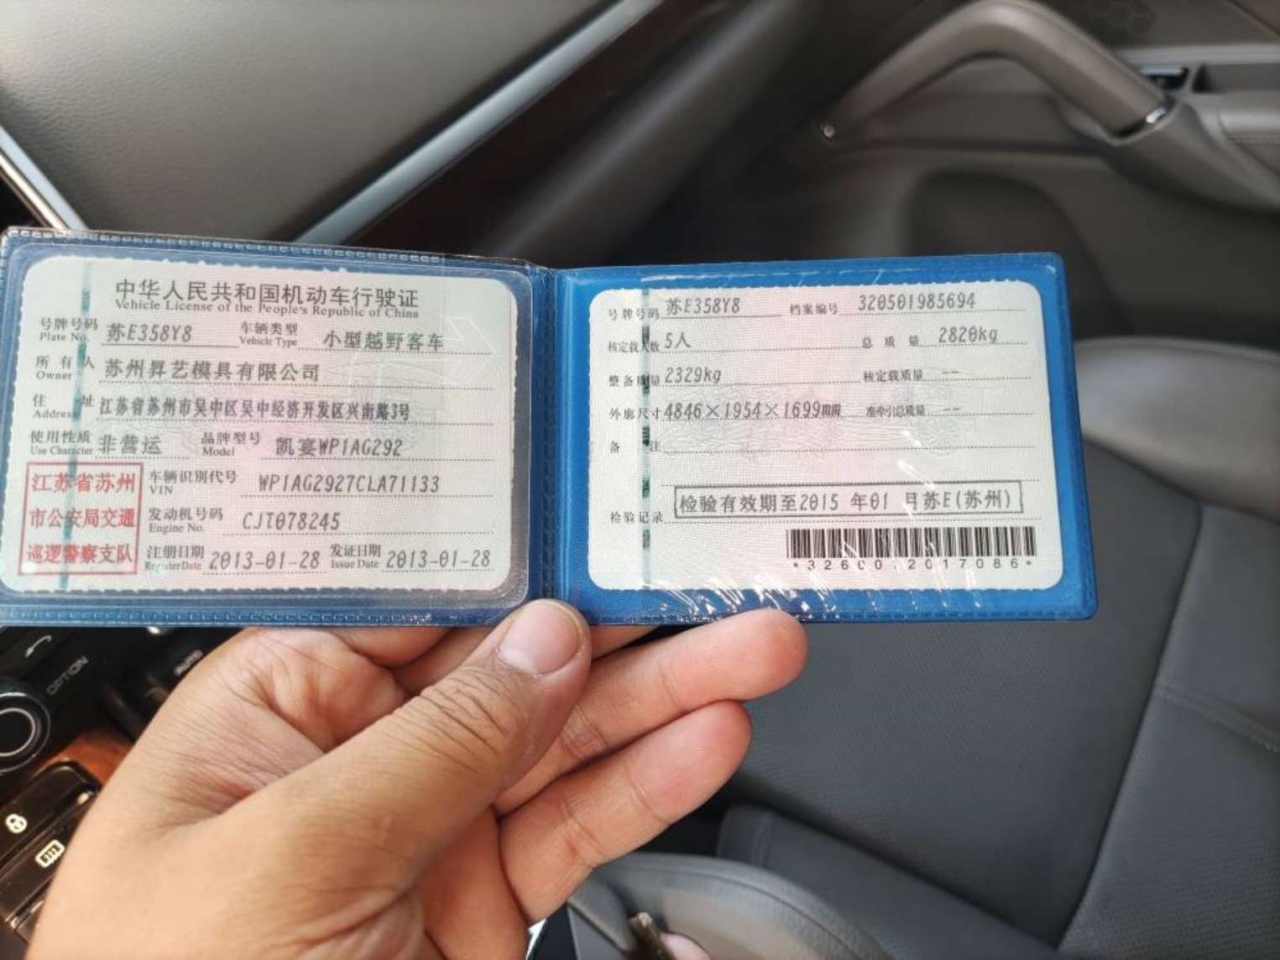 中华人民共和国机动车行驶证
Vehicle License of the People's Republic of China
号牌号码 苏E358Y8 车辆类型 小型越野客车
Plate No. Vehicle Type
所有人 苏州昇艺模具有限公司
Owner
住址 江苏省苏州市吴中区吴中经济开发区兴南路3号
Address
使用性质 非营运 品牌型号 凯宴WP1AG292
Use Character Model
江苏省苏州
市公安局交通
巡逻警察支队
车辆识别代号 WP1AG2927CLA71133
VIN
发动机号码 CJT078245
Engine No.
注册日期 2013-01-28 发证日期 2013-01-28
Register Date Issue Date
号牌号码 苏E358Y8 档案编号 320501985694
核定载人数 5人 总质量 2820kg
整备质量 2329kg 核定载质量 --
外廓尺寸 4846×1954×1699 准牵引总质量 --
备注
检验记录 检验有效期至2015 年01 月苏E(苏州)
*32600.2017086*
OPTION
AUTO